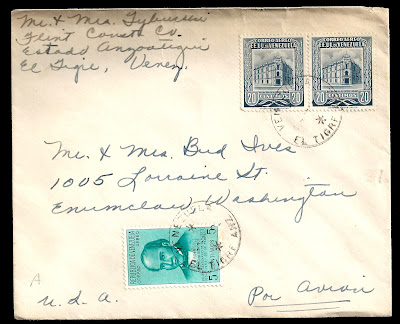 Mr. & Mrs. Tybussen
Flint Const. Co.
Estado Anzoategui
El Tigre, Venez.
CORREO AEREO CORREO AEREO
EE.UU. DE VENEZUELA EE.UU. DE VENEZUELA
20 CENTIMOS 20 20 CENTIMOS 20
EL TIGRE
Mr. & Mrs. Bud Ives
1005 Lorraine St.
Enumclaw, Washington
EL TIGRE ANZ
5
5
U.S.A.
Por Avion